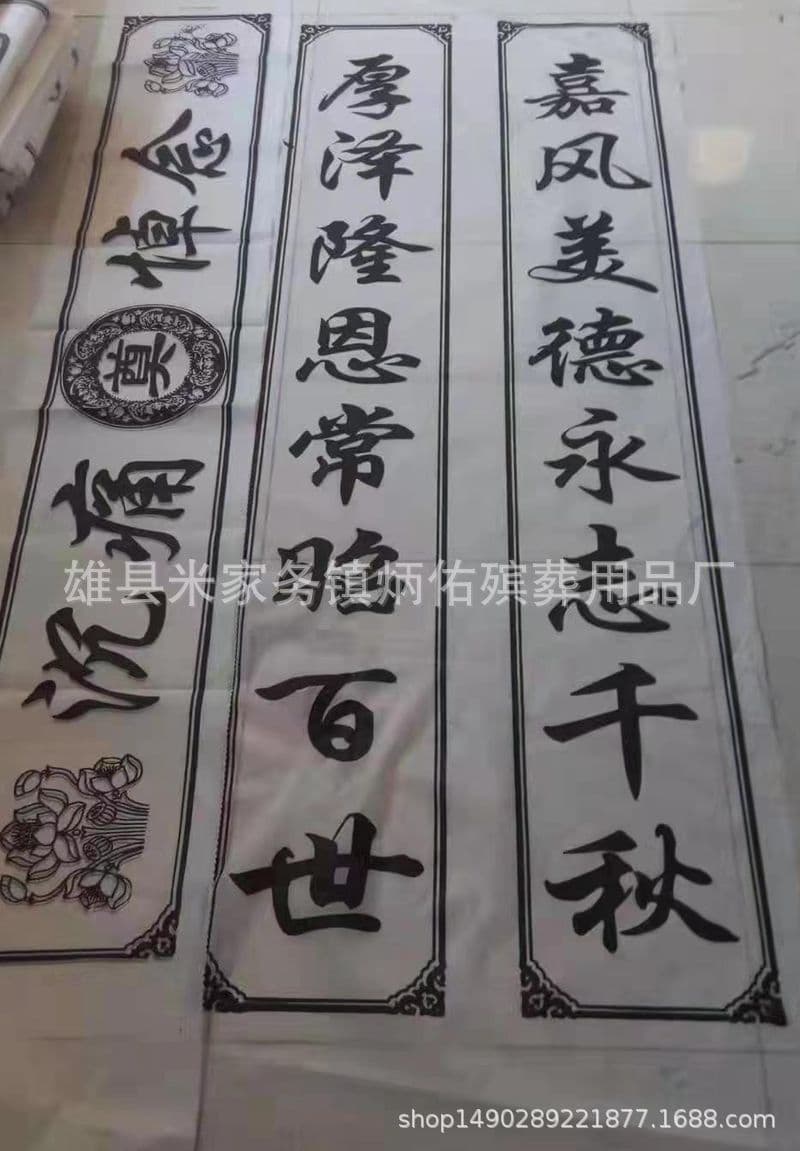 嘉风美德永志千秋
厚泽隆恩常昭百世
沉痛奠悼念
雄县米家务镇炳佑殡葬用品厂
shop1490289221877.1688.com